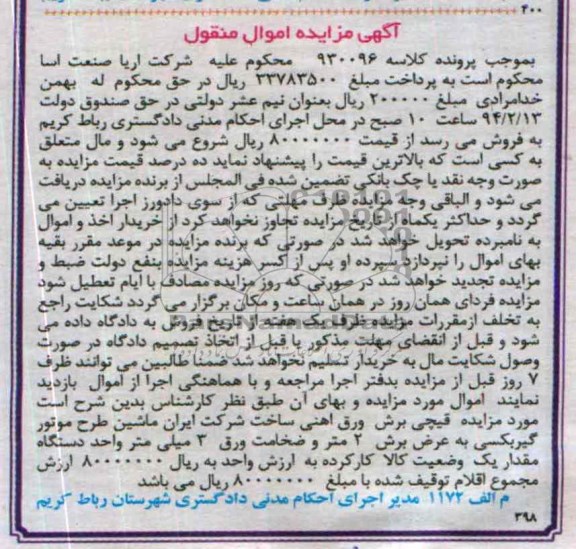 ۴۰۰
آگهی مزایده اموال منقول
بموجب پرونده کلاسه ۹۳۰۰۹۶ محکوم علیه شرکت اریا صنعت اسا
محکوم است به پرداخت مبلغ ۳۳۷۸۳۵۰۰ ریال در حق محکوم له بهمن
خدامرادی مبلغ ۲۰۰۰۰۰۰ ریال بعنوان نیم عشر دولتی در حق صندوق دولت
۹۴/۲/۱۳ ساعت ۱۰ صبح در محل اجرای احکام مدنی دادگستری رباط کریم
به فروش می رسد از قیمت ۸۰۰۰۰۰۰۰ ریال شروع می شود و مال متعلق
به کسی است که بالاترین قیمت را پیشنهاد نماید ده درصد قیمت مزایده به
صورت وجه نقد یا چک بانکی تضمین شده فی المجلس از برنده مزایده دریافت
می شود و الباقی وجه مزایده ظرف مهلتی که از سوی دادورز اجرا تعیین می
گردد و حداکثر یکماه از تاریخ مزایده تجاوز نخواهد کرد از خریدار اخذ و اموال
به نامبرده تحویل خواهد شد در صورتی که برنده مزایده در موعد مقرر بقیه
بهای اموال را نپردازد سپرده او پس از کسر هزینه مزایده بنفع دولت ضبط و
مزایده تجدید خواهد شد در صورتی که روز مزایده مصادف با ایام تعطیل شود
مزایده فردای همان روز در همان ساعت و مکان برگزار می گردد شکایت راجع
به تخلف از مقررات مزایده ظرف یک هفته از تاریخ فروش به دادگاه داده می
شود و قبل از انقضای مهلت مذکور یا قبل از اتخاذ تصمیم دادگاه در صورت
وصول شکایت مال به خریدار تسلیم نخواهد شد ضمنا طالبین می توانند ظرف
۷ روز قبل از مزایده بدفتر اجرا مراجعه و با هماهنگی اجرا از اموال بازدید
نمایند اموال مورد مزایده و بهای آن طبق نظر کارشناس بدین شرح است
مورد مزایده قیچی برش ورق اهنی ساخت شرکت ایران ماشین طرح موتور
گیربکسی به عرض برش ۲ متر و ضخامت ورق ۳ میلی متر واحد دستگاه
مقدار یک وضعیت کالا کارکرده به ارزش واحد به ریال ۸۰۰۰۰۰۰۰ ارزش
مجموع اقلام توقیف شده با مبلغ ۸۰۰۰۰۰۰۰ ریال می باشد
م الف ۱۱۷۲ مدیر اجرای احکام مدنی دادگستری شهرستان رباط کریم
۳۹۸